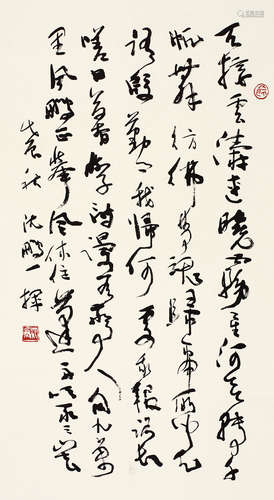 天接雲濤連曉霧星河欲轉千
帆舞彷彿夢魂歸帝所聞天
語殷勤問我歸何處我報路長
嗟日暮學詩謾有驚人句九萬
里風鵬正舉風休住蓬舟吹取三山去
戊辰秋沈鵬一揮